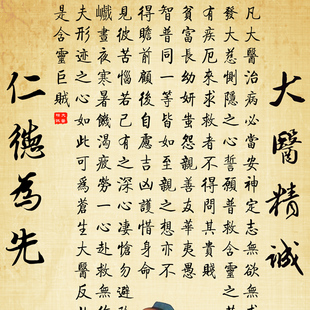 大醫精誠
凡大醫治病必當安神定志無欲無求
發大慈惻隱之心誓願普救含靈之
有疾厄來求救者不得問其貴賤
貧富長幼妍蚩怨親善友華夷愚
智普同一等皆如至親之想亦不
得瞻前顧後自慮吉凶護惜身命
見彼苦惱若己有之深心悽愴勿避
巇晝夜寒暑飢渴疲勞一心赴救無作
夫形迹之心如此可為蒼生大醫反此
是含靈巨賊
仁德為先